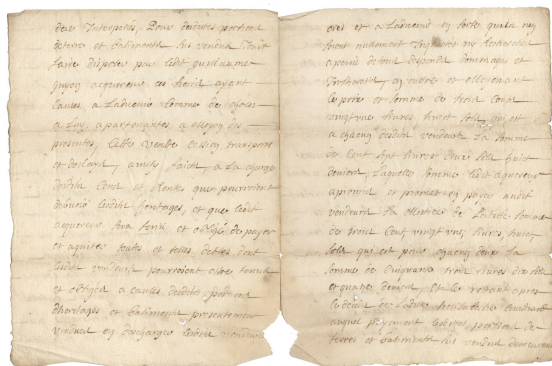 deux Interpetés, Pour desdites portions
de terre et batiments sus vendus
faire disposer par ledit guillaume
guyon acquereur ses hoirs ayant
causes a Ladvenir Comme de choses
a Luy apartenantes a moyen des
presentes, Cette vente cession transport
et delays, ainsy faicte, a la charge
desdits Cens et Rentes que pourroient
debvoir lesdits heritages, et que ledit
acquereur sera tenu et obligé de payer
et aquiter toutes et telles debtes dont
lesdits vendeurs pourroient estre tenus
et obligés a causes desdites portions
dheritages et batiments presentement
vendus en descharger lesdits vendeurs
ores et a Ladvenir en sorte quils n'en
soient nullement Inquietés ny Recherchés
a peine de tous despends dommages et
Interests, en outre et moyenant
le prix et somme de trois Cents
vingt une livres huict sols, qui est
a chacun desdits vendeurs La somme
de Cent sept livres deux sols huict
deniers, Laquelle somme ledit aquereur
a promis et promet en payer audit
vendeurs La moitié de Ladite somme
de trois Cents vingt une livres, huict
sols qui est pour chacun deux la
somme de Cinquante trois livres dix sols
et quatre deniers, Et le restant apres
le decedz de Ladite
auquel payement lesdites portions de
terres et batiments sus vendus demeurent